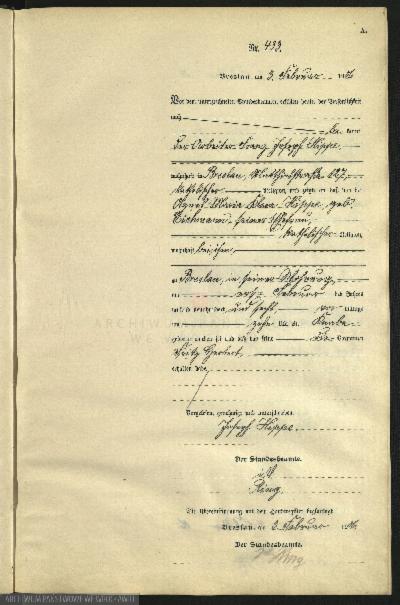 A.
Nr. 433.
Breslau am 3. Februar 19
Vor dem unterzeichneten Standesbeamten erschien heute, der Persönlichkeit
nach
kannt,
der Arbeiter Franz Joseph Hippe,
wohnhaft in Breslau,
katholischer Religion, und zeigte an, daß von der
Agnes Maria Klara Hippe, geb.
Eichmann, seiner Ehefrau,
katholischer Religion,
wohnhaft bei ihm,
zu Breslau, in seiner Wohnung,
am ersten Februar des Jahres
tausend neunhundert und sechs, vormittags
um zehn Uhr ein Knabe
geboren worden sei und daß das Kind die Vornamen
Fritz Herbert
erhalten habe.
Vorgelesen, genehmigt und unterschrieben
Joseph Hippe.
Der Standesbeamte.
Ring.
Die Übereinstimmung mit dem Hauptregister beglaubigt
Breslau, am 3. Februar 19
Der Standesbeamte.
Ring
ARCHIWUM PAŃSTWOWE WE WROCŁAWIU